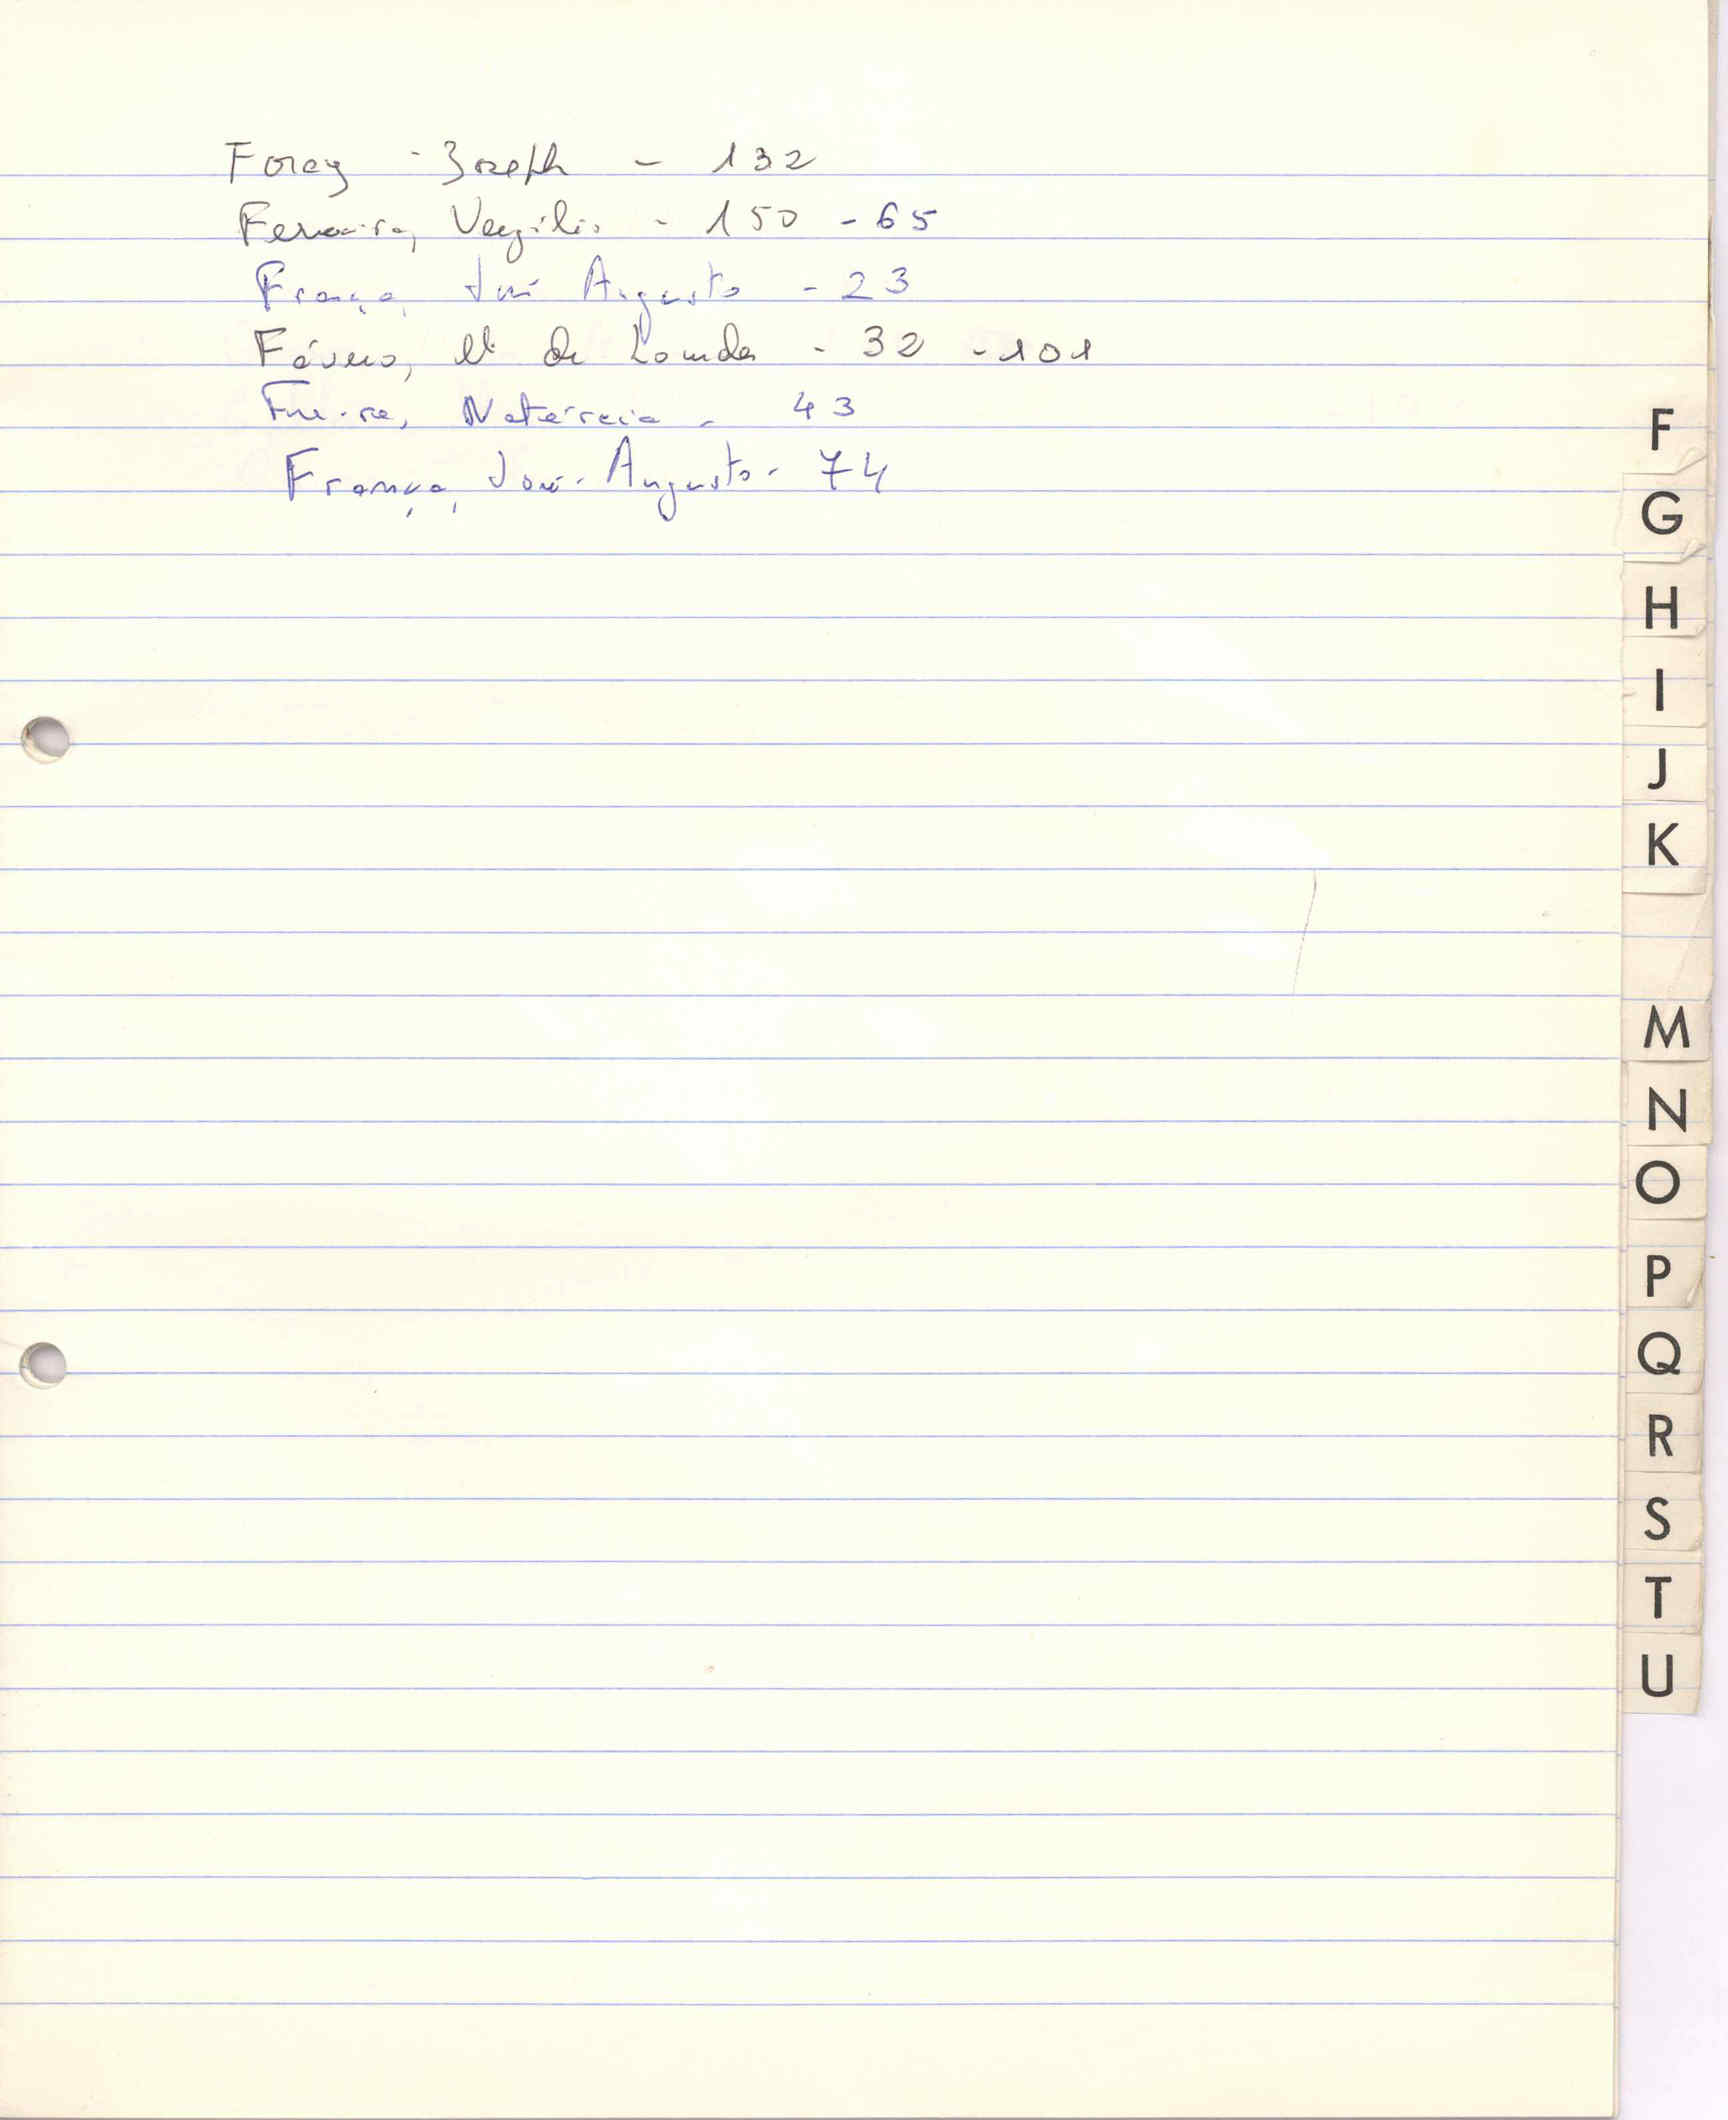 Foray - Joseph - 132
Ferreira, Vergílio - 150 - 65
França, José Augusto - 23
Fávero, Mª de Lourdes - 32 - 101
Freire, Natércia - 43
França, José-Augusto - 74
F
G
H
I
J
K
M
N
O
P
Q
R
S
T
U